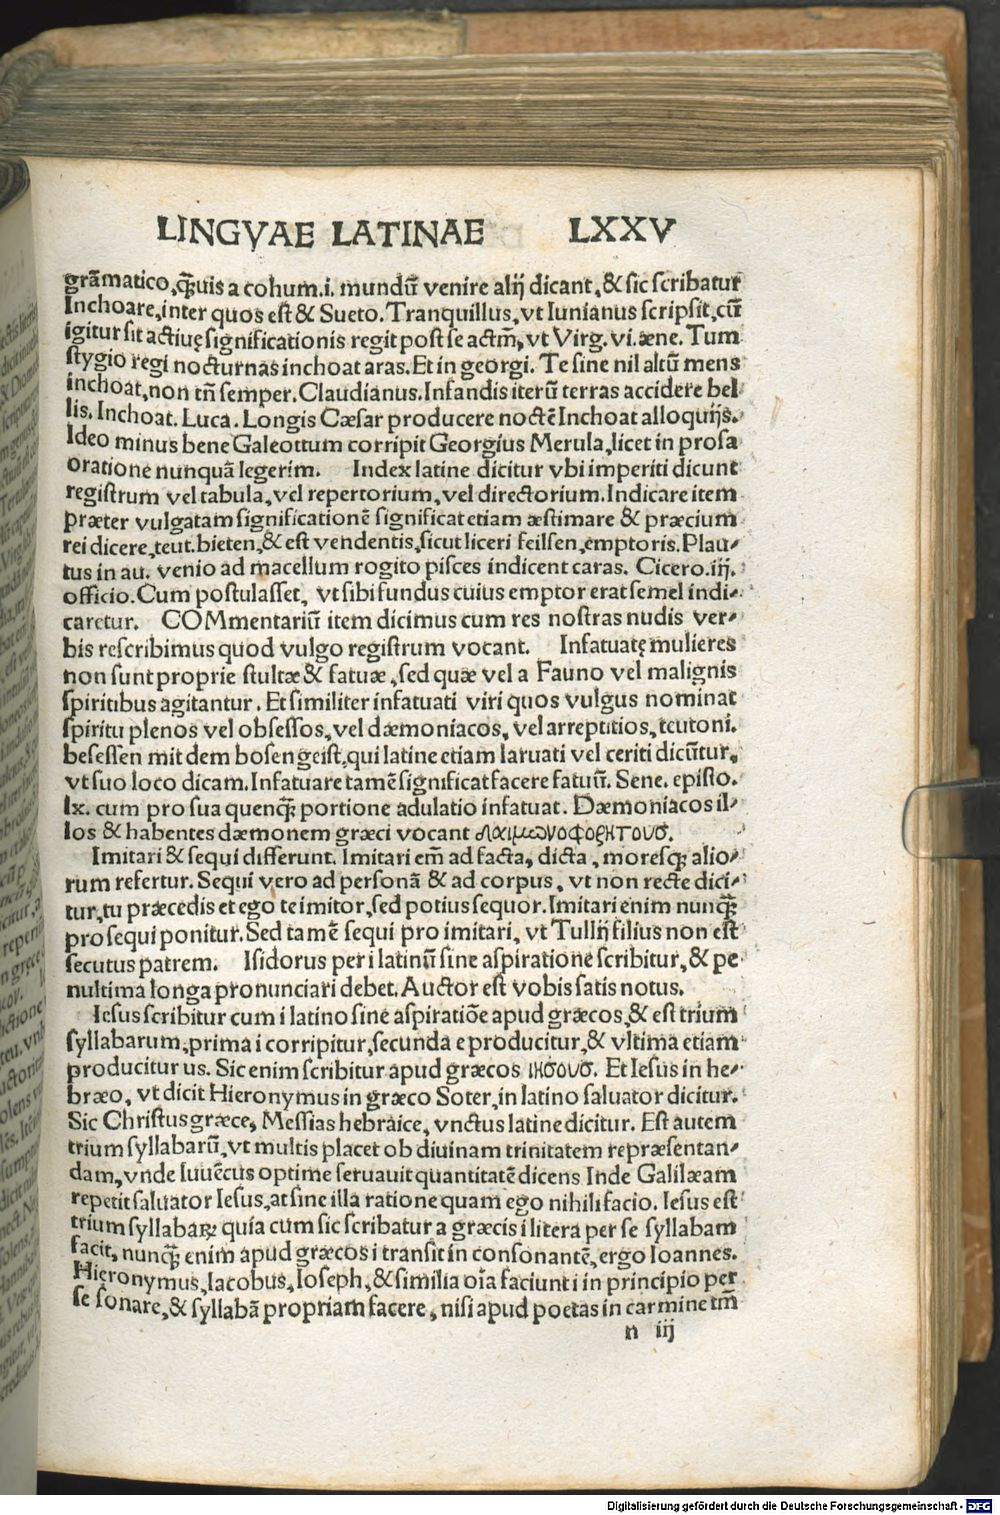 LINGVAE LATINAE LXXV
grãmatico,q̃uis a cohum.i. mundũ venire alij dicant,& sic scribatur
Inchoare,inter quos est & Sueto.Tranquillus,vt Iunianus scripsit,cũ
igitur sit actiuę significationis regit post se actm̃,vt Virg.vi.æne.Tum
stygio regi nocturnas inchoat aras.Et in georgi. Te sine nil altũ mens
inchoat,non tñ semper.Claudianus.Infandis iterũ terras accidere bel
lis.Inchoat.Luca.Longis Cæsar producere noctẽ Inchoat alloquijs.
Ideo minus bene Galeottum corripit Georgius Merula,licet in prosa
oratione nunquã legerim. Index latine dicitur vbi imperiti dicunt
registrum vel tabula,vel repertorium,vel directorium.Indicare item
præter vulgatam significationẽ significat etiam æstimare & præcium
rei dicere,teut.bieten,& est vendentis,sicut liceri feilsen,emptoris.Plau⸗
tus in au. venio ad macellum rogito pisces indicent caras. Cicero.iij.
officio.Cum postulasset, vt sibi fundus cuius emptor erat semel indi⸗
caretur. COMmentariũ item dicimus cum res nostras nudis ver⸗
bis rescribimus quod vulgo registrum vocant. Infatuatę mulieres
non sunt proprie stultæ & fatuæ,sed quæ vel a Fauno vel malignis
spiritibus agitantur.Et similiter infatuati viri quos vulgus nominat
spiritu plenos vel obsessos,vel dæmoniacos,vel arreptitios,teutoni.
besessen mit dem bosen geist,qui latine etiam laruati vel ceriti dicũtur,
vt suo loco dicam.Infatuare tamẽ significat facere fatuũ. Sene.episto.
lx. cum pro sua quenq̃ portione adulatio infatuat. Dæmoniacos il⸗
los & habentes dæmonem græci vocant δαιμωνοφορητους.
Imitari & sequi differunt. Imitari em̃ ad facta,dicta,moresq; alio⸗
rum refertur.Sequi vero ad personã & ad corpus,vt non recte dici⸗
tur,tu præcedis et ego te imitor,sed potius sequor.Imitari enim nunq̃
pro sequi ponitur.Sed tamẽ sequi pro imitari,vt Tullij filius non est
secutus patrem. Isidorus per i latinũ sine aspiratione scribitur,& pe
nultima longa pronunciari debet.Auctor est vobis satis notus.
Iesus scribitur cum i latino sine aspiratiõe apud græcos,& est trium
syllabarum,prima i corripitur,secunda e producitur,& vltima etiam
producitur us. Sic enim scribitur apud græcos ιησους. Et Iesus in he⸗
bræo, vt dicit Hieronymus in græco Soter,in latino saluator dicitur.
Sic Christus græce, Messias hebraice, vnctus latine dicitur. Est autem
trium syllabarũ,vt multis placet ob diuinam trinitatem repræsentan⸗
dam,vnde Iuuẽcus optime seruauit quantitatẽ dicens Inde Galilæam
repetit saluator Iesus,at sine illa ratione quam ego nihili facio. Iesus est
trium syllabaꝝ quia cum sic scribatur a græcis i litera per se syllabam
facit, nunq̃ enim apud græcos i transit in consonantẽ,ergo Ioannes.
Hieronymus,Iacobus,Ioseph,& similia oĩa faciunt i in principio per
se sonare,& syllabã propriam facere,nisi apud poetas in carmine tm̃
n iij
Digitalisierung gefördert durch die Deutsche Forschungsgemeinschaft - DFG